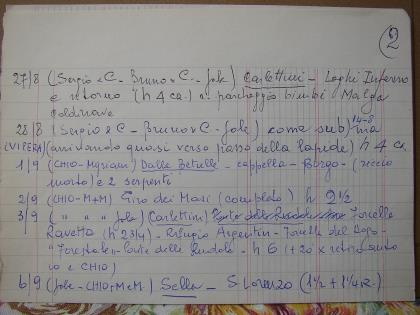 2
27/8 (Sergio e C - Bruno e C. - Jole) Carlettini - Laghi Inferno
e ritorno (h 4 ca.) a parcheggio bimbi Malga
Caldenave
28/8 (Sergio e C - Bruno e C - Jole) come sub/ 14-8
(VIPERA) (arrivando quasi verso piano della lapide) h 4 ca
1/9 (CHIO - Myriam) Dalle Betulle - cappella - Borgo - (riccio
morto) e 2 serpenti
2/9 (CHIO - M+M) Giro dei Masi (completo) h 2 1/2
3/9 (" " " Jole) Carlettini Forcelle
Ravetta (h 2 3/4) - Rifugio Argentin - Forcelle del Lago -
- h 6 (+ 20' x
io e CHIO)
6/9 (Jole - CHIO + M e M) Sella - S. Lorenzo (1 1/2 + 1 1/4 R.)